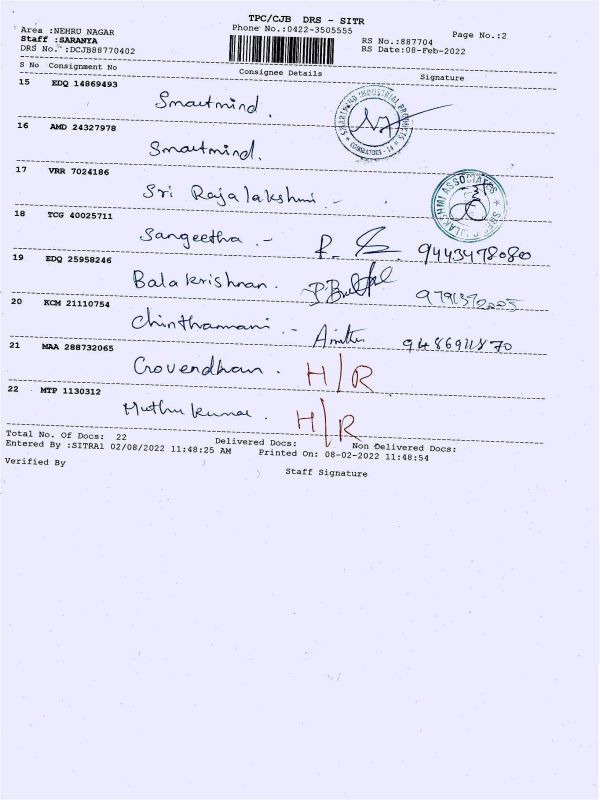 TPC/CJB DRS - SITR
Area :NEHRU NAGAR Phone No.:0422-3505555 Page No.:2
Staff :SARANYA RS No.:887704
DRS No. :DCJB88770402 RS Date:08-Feb-2022
S No Consignment No Consignee Details Signature
15 EDQ 14869493
Smartmind. SMARTMIND INDUSTRIAL PRODUCTS COIMBATORE - 14
16 AMD 24327978
Smartmind.
17 VRR 7024186
Sri Rajalakshmi - LAKSHMI ASSOCIATES
18 TCG 40025711
Sangeetha . - 9443478080
19 EDQ 25958246
Balakrishnan.
20 KCM 21110754
Chinthamani . -
21 MAA 288732065
Govendhan . H/R
22 MTP 1130312
Muthukumar . H/R
Total No. Of Docs: 22 Delivered Docs: Non Delivered Docs:
Entered By :SITRA1 02/08/2022 11:48:25 AM Printed On: 08-02-2022 11:48:54
Verified By Staff Signature